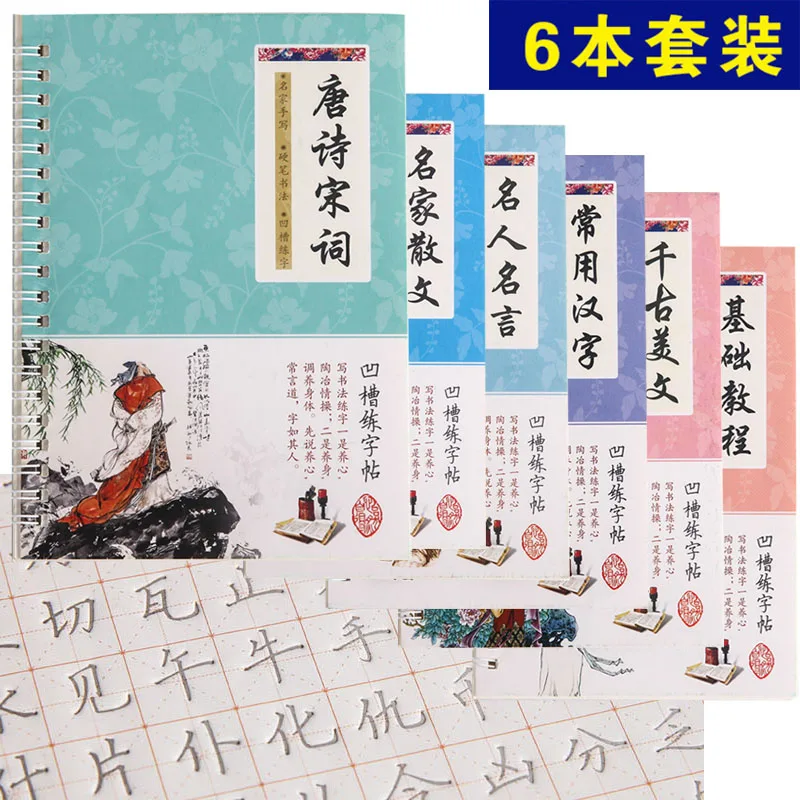 6本套装
唐诗宋词
●名家手写 ●硬笔书法 ●凹槽练字
凹槽练字帖
写书法练字一是养心，
陶冶情操；二是养身，
调养身体。先说养心，
常言道，字如其人。
名家散文
凹槽练字帖
写书法练字一是养心
陶冶情操；二是养身
名人名言
凹槽练字帖
写书法练字一是养心
陶冶情操；二是养身
调养身体。先说养心
常用汉字
凹槽练字帖
写书法练字一是养心
陶冶情操；二是养身
千古美文
凹槽练字帖
写书法练字一是养心
陶冶情操；二是养身
基础教程
凹槽练字帖
写书法练字一是养心
陶冶情操；二是养身
切瓦正
水见午牛手
什片仆化仇
山分乏